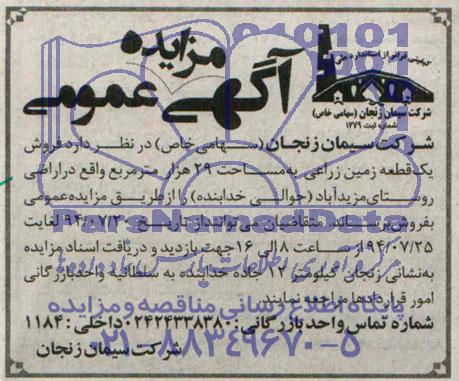 مزایده
آگهی عمومی
شرکت سیمان زنجان (سهامی خاص)
شماره ثبت ۱۲۷۹
شرکت سیمان زنجان (سهامی خاص) در نظر دارد فروش
یک قطعه زمین زراعی به مساحت ۲۹ هزار مترمربع واقع در اراضی
روستای مزیدآباد (حوالی خدابنده) را از طریق مزایده عمومی
بفروش برساند. متقاضیان می توانند از تاریخ ۹۴/۰۷/۲۰ لغایت
۹۴/۰۷/۲۵ از ساعت ۸ الی ۱۶ جهت بازدید و دریافت اسناد مزایده
به نشانی زنجان کیلومتر ۱۲ جاده خدابنده به سلطانیه واحد بازرگانی
امور قراردادها مراجعه نمایند.
شماره تماس واحد بازرگانی: ۰۲۴۲۴۳۳۸۳۸۰ داخلی: ۱۱۸۴
شرکت سیمان زنجان
ParsNamadData
پایگاه اطلاع رسانی مناقصه و مزایده
۰۲۱-۸۸۳۴۹۶۷۰-۵